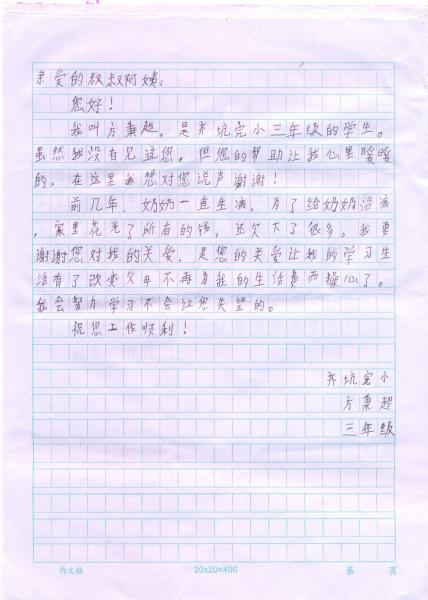 亲爱的叔叔阿姨:
您好!
我叫方秉超,是齐坑完小三年级的学生。
虽然我没有见过您。但您的帮助让我心里暖暖
的,在这里我想对您说声谢谢!
前几年,奶奶一直生病,为了给奶奶治病
,家里花光了所有的钱,还欠下了很多。我要
谢谢您对我的关爱,是您的关爱让我的学习生
活有了改变父母不再为我的生活费而操心了。
我会努力学习不会让您失望的。
祝您工作顺利!
齐坑完小
方秉超
三年级
作文稿 20x20=400 第 页